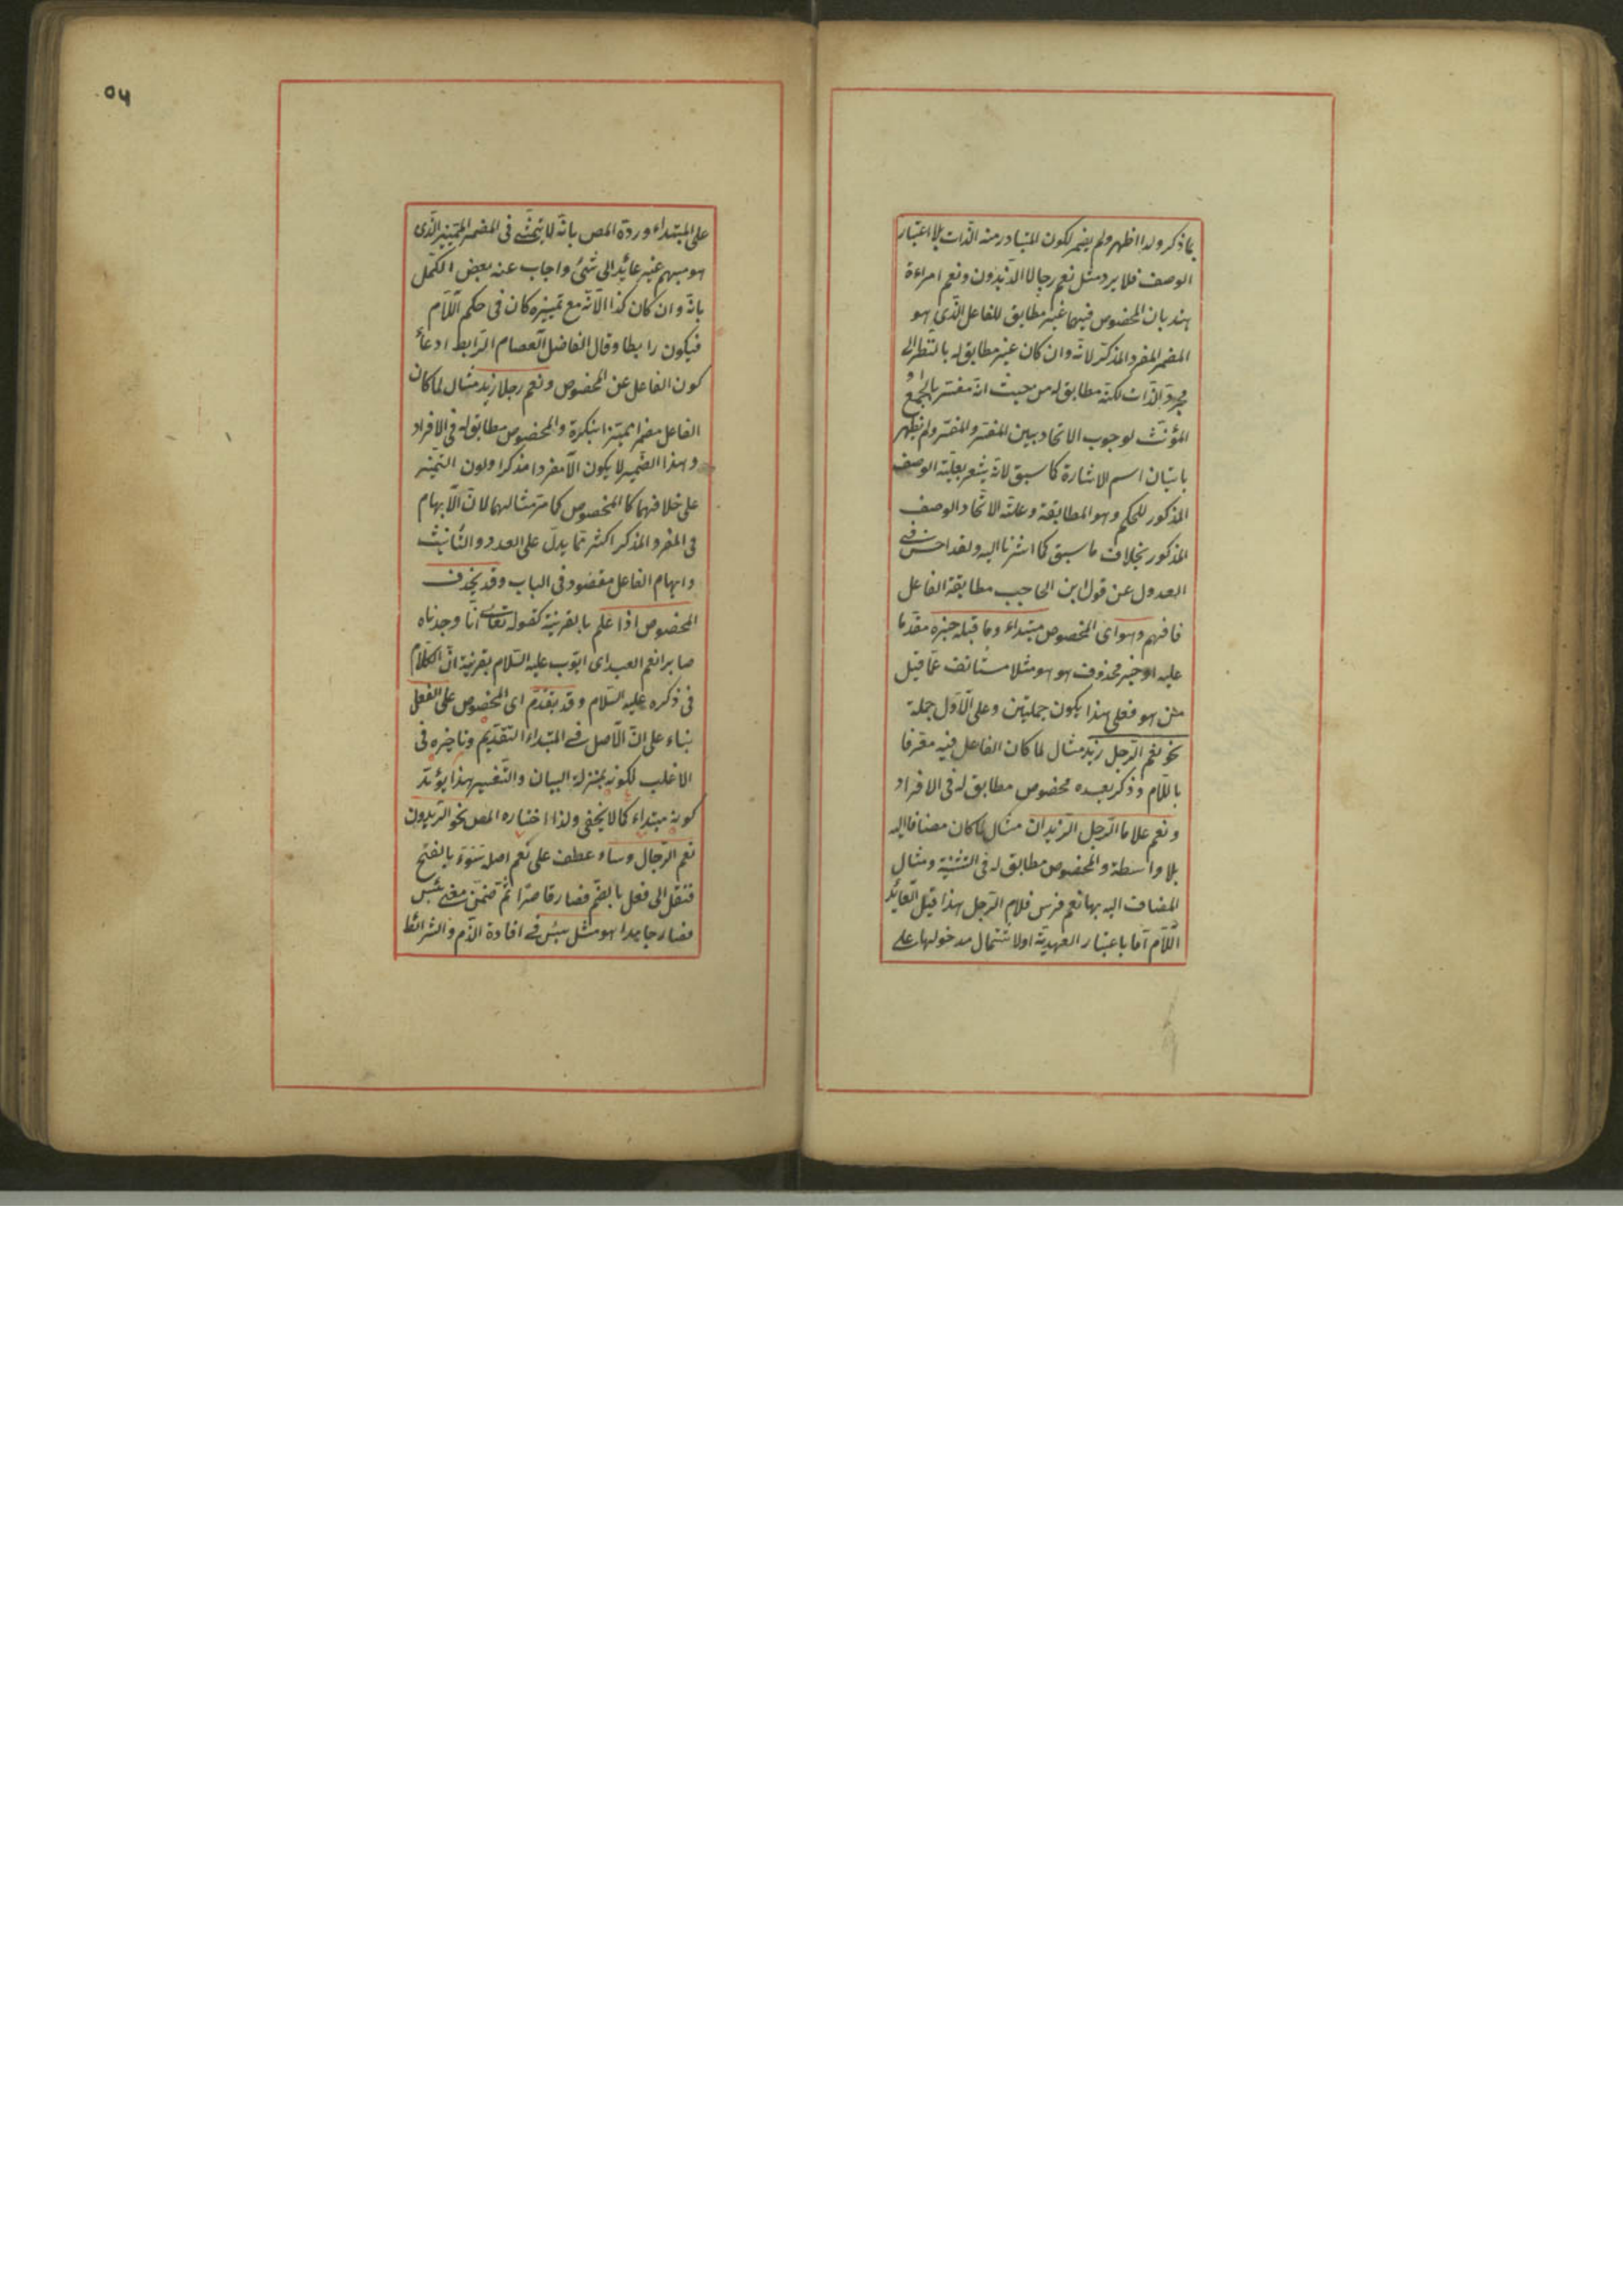 بما ذكر ولذا اظهر ولم يضمر لكون المتبادر منه الذات بلا اعتبار
الوصف فلا يرد مثل نعم رجالا الزيدون ونعم امراءة
هند بان المخصوص فيهما غير مطابق للفاعل الذي هو
المضمر المفرد المذكر لانه وان كان غير مطابق له بالنظر الى
مجرد الذات لكنه مطابق له من حيث انه مفسر بالجمع او
المؤنث لوجوب الاتحاد بين المفسر والمفسر ولم يظهر
باتيان اسم الاشارة كما سبق لانه يشعر بعلية الوصف
المذكور للحكم وهو المطابقة وعلته الاتحاد والوصف
المذكور بخلاف ما سبق كما اشرنا اليه ولقد احسن في
العدول عن قول ابن الحاجب مطابقة الفاعل
فافهم وهو اى المخصوص مبتداء وما قبله خبره مقدما
عليه او خبر محذوف هو هو مثلا مستانف عما قيل
من هو فعلى هذا يكون جملتين وعلى الاول جملة
نحو نعم الرجل زيد مثال لما كان الفاعل فيه معرفا
باللام وذكر بعده مخصوص مطابق له فى الافراد
ونعم غلاما الرجل الزيدان مثال لما كان مضافا اليه
بلا واسطة والمخصوص مطابق له فى التثنية ومثال
المضاف اليه بها نعم فرس غلام الرجل هذا قيل العائد
اللام اما باعتبار العهدية او لاشتمال مدخولها على
على المبتداء ورده المص بانه لا يتمشى فى المضمر المميز الذى
هو مبهم غير عائد الى شئ واجاب عنه بعض الكمل
بانه وان كان كذا الا انه مع تمييزه كان فى حكم اللام
فيكون رابطا وقال الفاضل العصام الرابط ادعاء
كون الفاعل عن المخصوص ونعم رجلا زيد مثال لما كان
الفاعل مضمرا مميزا بنكرة والمخصوص مطابق له فى الافراد
وهذا الضمير لا يكون الا مفردا مذكرا ولون التميز
على خلافهما كالمخصوص كما مر مثالهما لان الابهام
فى المفرد المذكر اكثر مما يدل على العدد والتأنيث
وابهام الفاعل مقصود فى الباب وقد يحذف
المخصوص اذا علم بالقرينة كقوله تعالى انا وجدناه
صابرا نعم العبد اى ايوب عليه السلام بقرينة ان الكلام
فى ذكره عليه السلام وقد يتقدم اى المخصوص على الفعل
بناء على ان الاصل فى المبتداء التقديم وتاخيره فى
الاغلب لكونه بمنزلة البيان والتفسير هذا يؤيد
كونه مبتداء كما لا يخفى ولذا اختاره المص نحو الزيدون
نعم الرجال وساء عطف على نعم اصله سوء بالفتح
فنقل الى فعل بالضم فصار قاصرا ثم ضمن معنى بئس
فصار جامدا هو مثل بئس فى افادة الذم والشرائط
٥٦